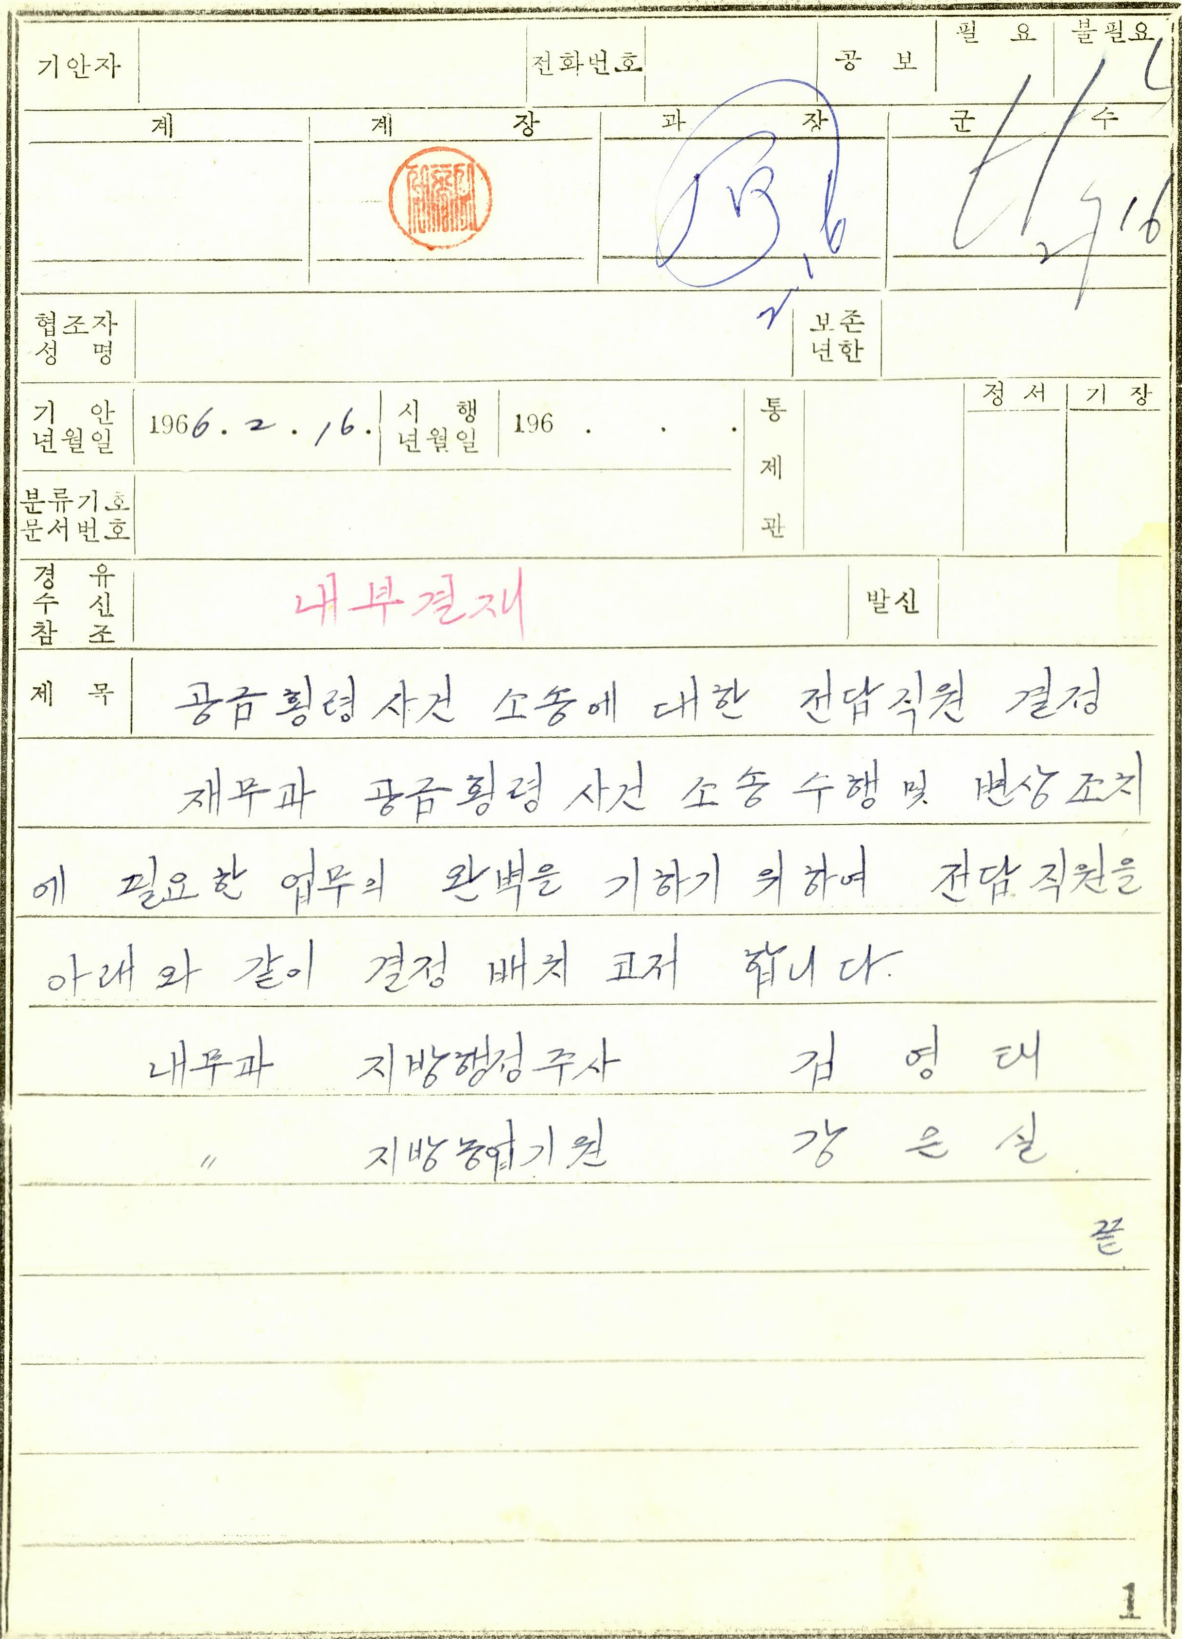 기안자 전화번호 공보 필요 불필요
계 계장 과장 군수
2.16
2/16
협조자성명 보존년한
기안년월일 1966.2.16. 시행년월일 196 . . . 통제관 정서 기장
분류기호문서번호
경유수신참조 내부결재 발신
제목 공금횡령사건 소송에 대한 전담직원 결정
재무과 공금횡령사건 소송수행및 변상조치
에 필요한 업무의 완벽을 기하기 위하여 전담직원을
아래와 같이 결정 배치 코저 합니다.
내무과 지방행정주사 김영태
〃 지방농업기원 강은실
끝
1